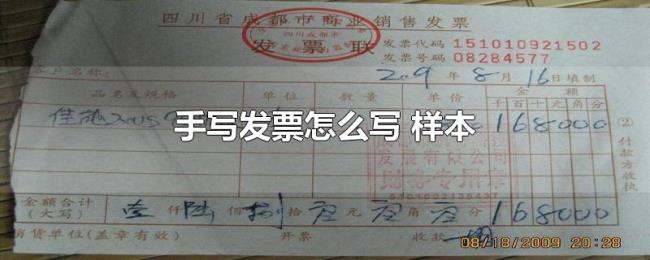 四川省成都市商业销售发票
四川成都市
发票联
发票代码 151010921502
发票号码 08284577
客户名称:
2009年8月16日填制
品名及规格 单位 数量 单价 金额
千百十元角分
佳能 168000
手写发票怎么写 样本
②付款方收执
发展有限公司
财务专用章
金额合计(大写) 壹仟陆佰捌拾元角分 168000
销货单位(盖章有效) 开票 收款
08/18/2009 20:28